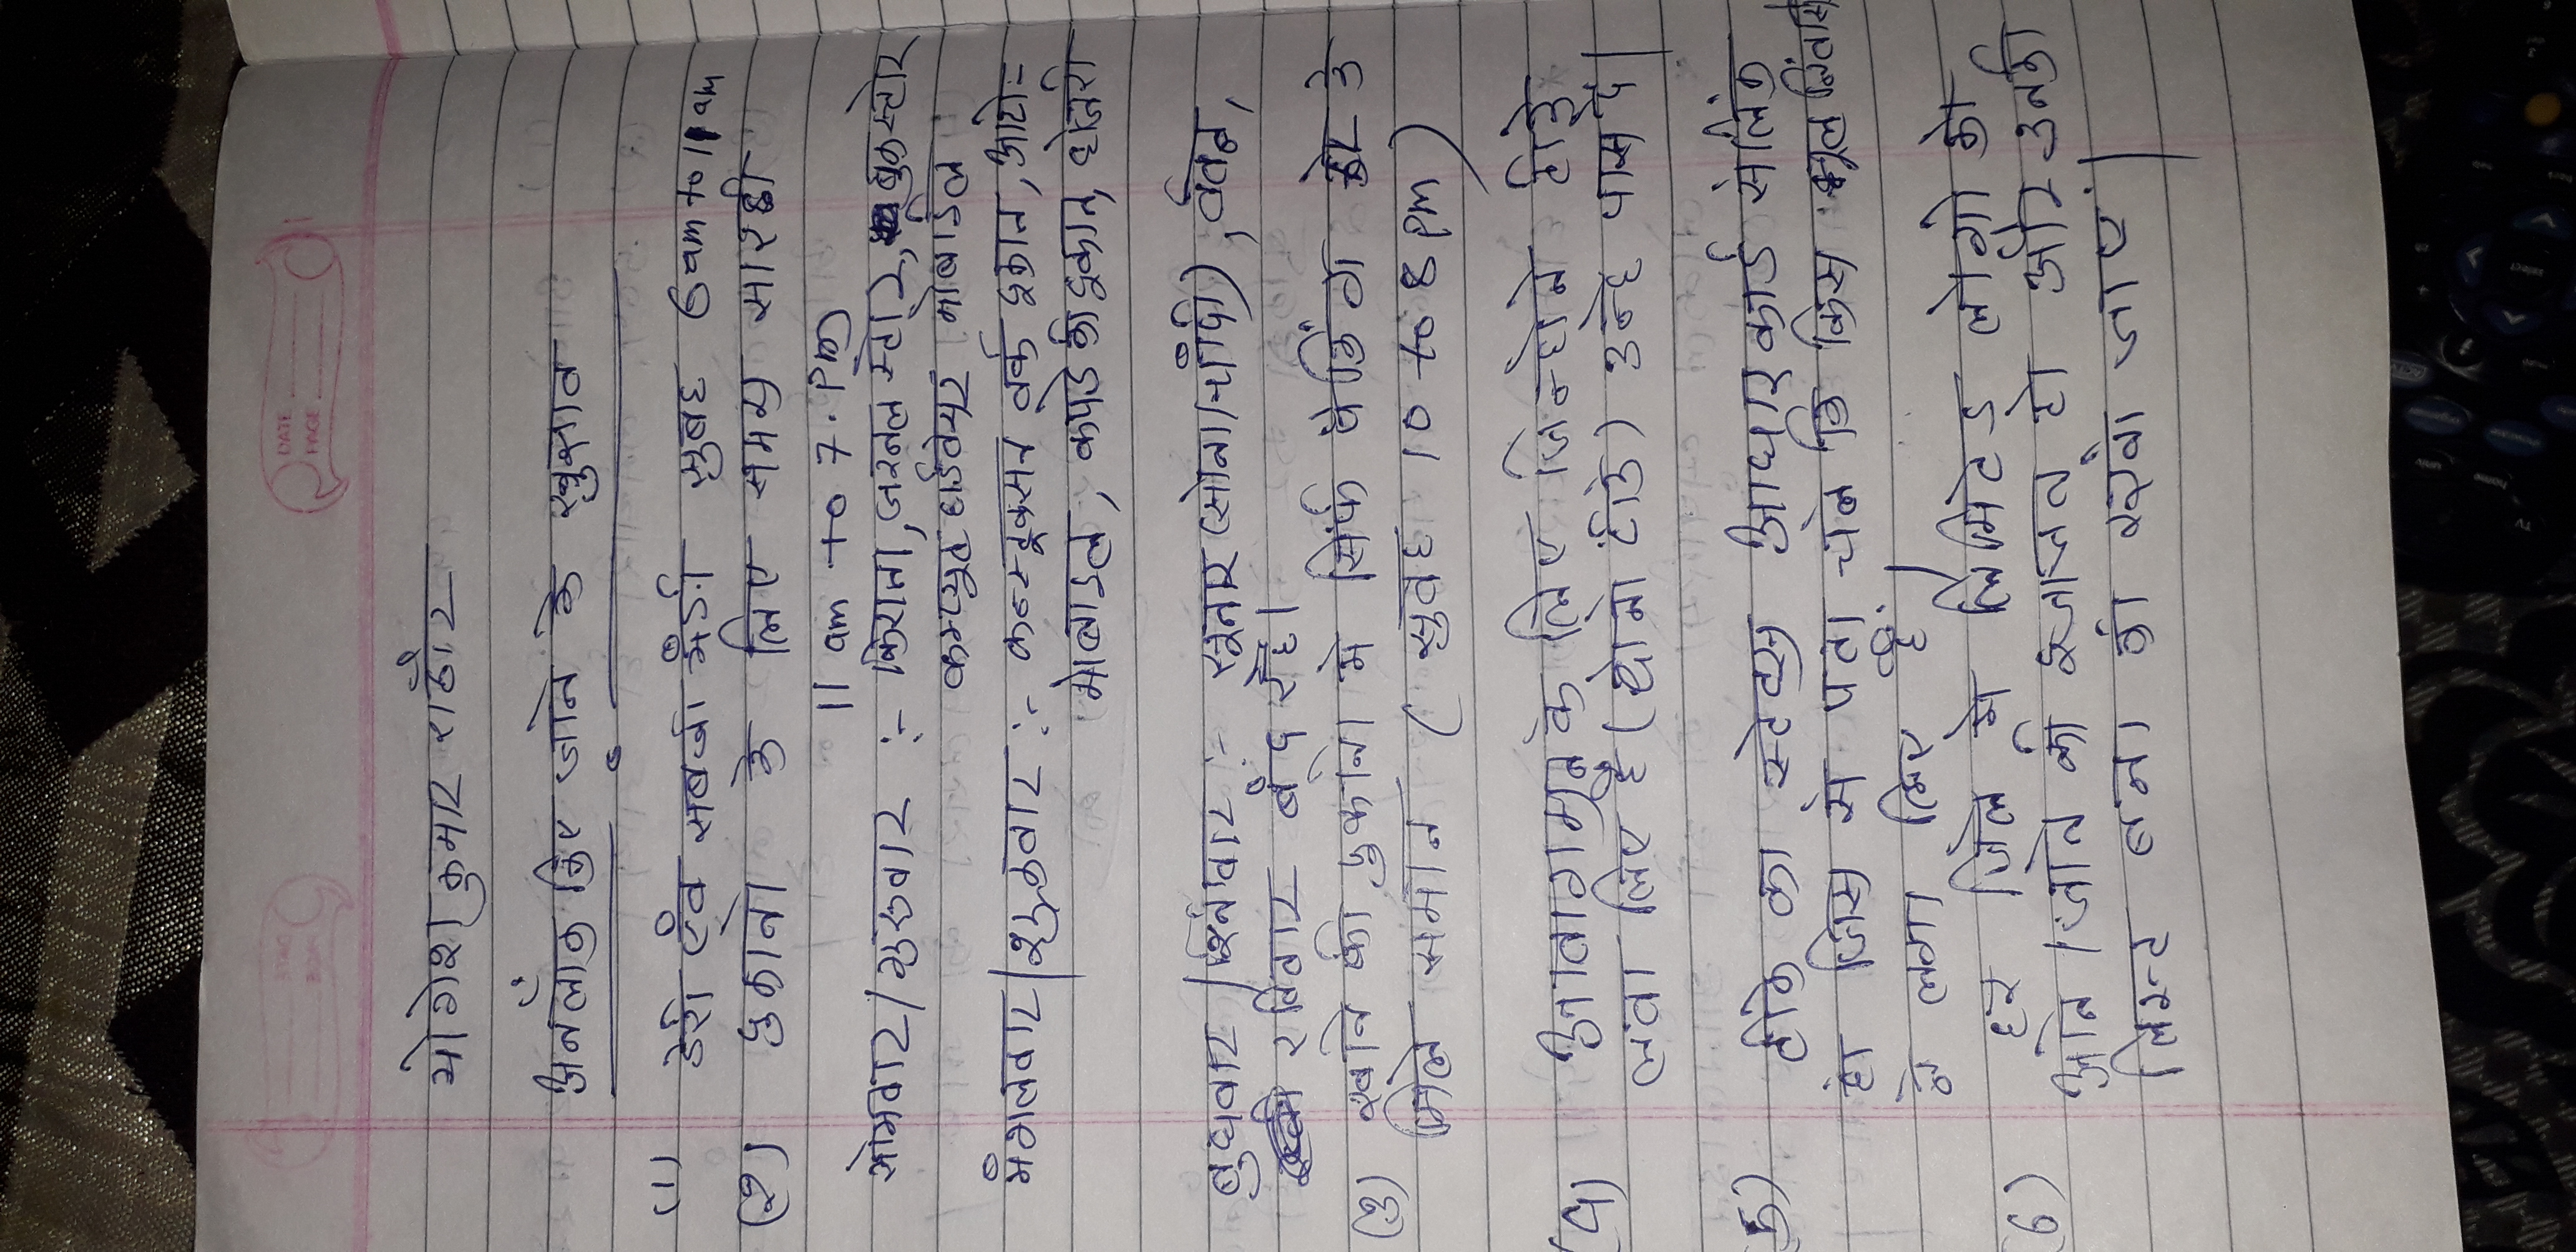 DATE
PAGE
योगेश कुमार राठौर
अनलॉक किए जाने के सुझाव
(1) डेरी एंव सब्जी मंडी सुबह 6am to 11am
(2) दुकानो के लिए समय सारणी
11 am to 7. Pm
सोमवार/गुरुवार :- किराना, जरनल स्टोर, बुक स्टोर
कम्प्युटर हार्डवेयर मोबाईल
मंगलवार/शुक्रवार :- कन्स्ट्रक्सन वर्क दुकान, ऑटो
मोबाइल, कपडे की दुकान,
बुधवार/शनिवार :- सुनार (सोना/चाँदी), बर्तन,
रविवार बंद रहे।
(3) खाने की दुकानो मे सिर्फ पेकिंग
मिले समान (सुबह 10 to 8 pm)
(4) आवागमन के लिए जिन्होने टीके
लगवा लिए है (दोनो टीके) उन्हे पास दे।
(5) टीके का स्टेटस आधार कार्ड से लिंक
हो जिस मे पता चले कि किस किस
ने लगा लिए है।
(6) हर जिले मे लिमिटेड लोगो को
आने/जाने की इजाजत हो और उनकी
लिस्ट बना के रखी जाए।